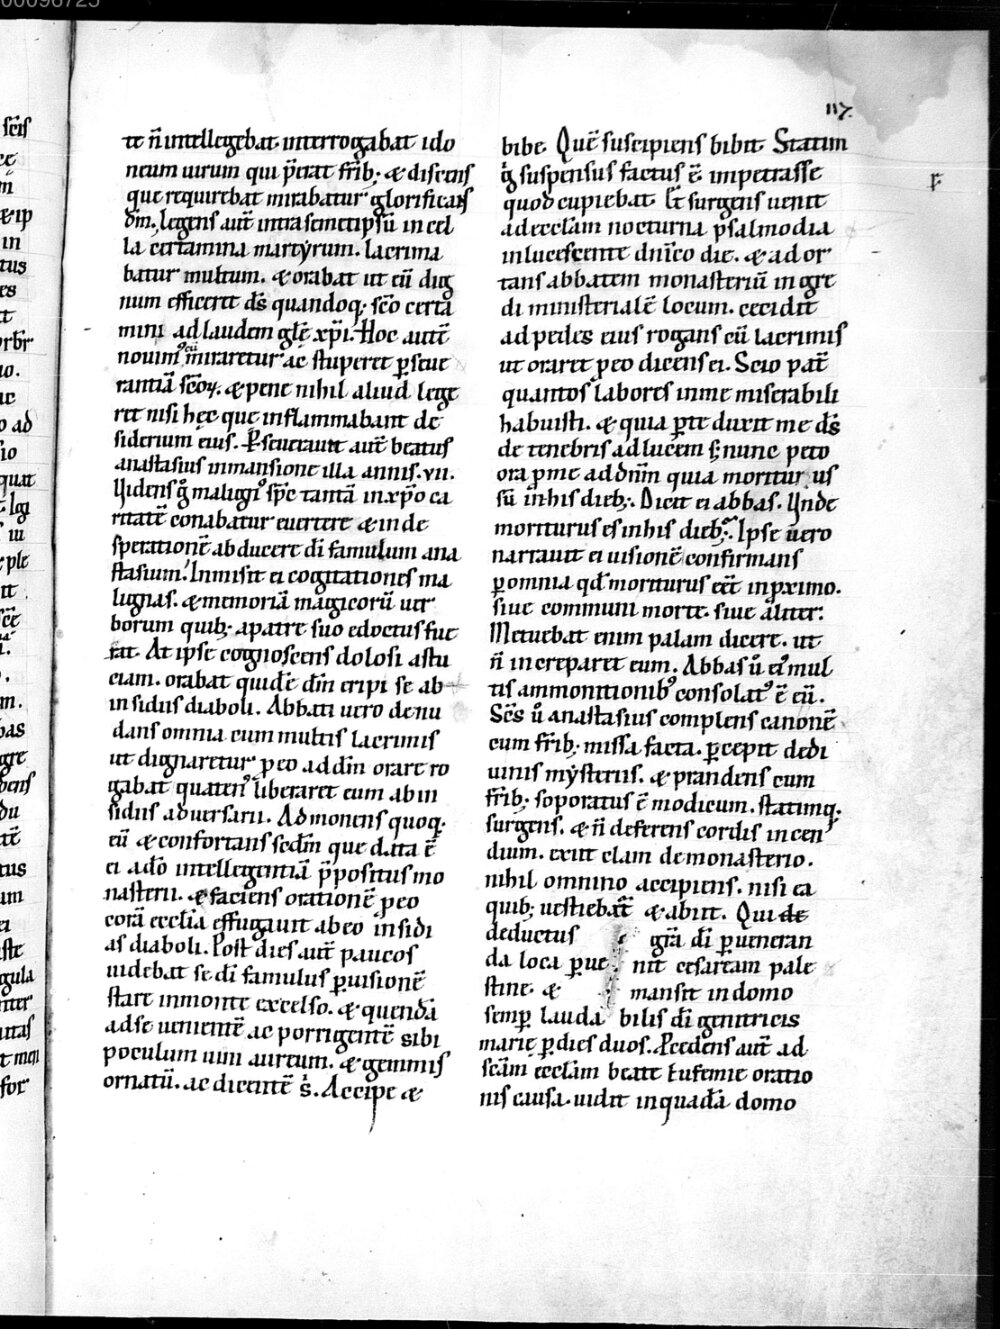 117.
te n̄ intellegebat. interrogabat ido
neum uirum qui p̄erat fr̄ib; & discens
que requirebat mirabatur glorificans
dm̄. legens aut̄ intra semetipsū in cel
la certamina martyrum. lacrima
batur multum. & orabat ut eū dig
num efficeret ds̄ quandoq; sc̄o certa
mini ad laudem glę xp̄i. Hoc autē
nouimꝰ cū miraretur ac stuperet ꝑseue
rantiā sc̄oꝝ. & pene nihil aliud lege
ret nisi hęc que inflammabant de
siderium eius. Ꝑseuerauit aut̄ beatus
anastasius in mansione illa annis. vii.
Uidens g̊ malignꝰ sp̄c tantā in xp̄o ca
ritatē conabatur euertere & in de
sperationē abducere dī famulum ana
stasium. Inmisit ei cogitationes ma
lignas. & memoriā magicorū uer
borum quib; a patre suo edoctus fue
rat. At ipse cognoscens dolosi astu
ciam. orabat quidē dm̄ eripi se ab
insidiis diaboli. Abbati uero denu
dans omnia cum multis lacrimis
ut dignaretur p eo ad dm̄ orare ro
gabat quatenꝰ liberaret eum ab in
sidiis aduersarii. Admonens quoq;
eū & confortans sedm̄ que data ē
ei a dō intellegentiā p̄positus mo
nasterii. & faciens orationē p eo
corā ecclīa effugauit ab eo insidi
as diaboli. Post dies aut̄ paucos
uidebat se dī famulus ꝑ uisionē
stare in monte excelso. & quendā
ad se uenientē ac porrigentē sibi
poculum uini aureum. & gemmis
ornatū. ac dicentē s̊. Accipe &
bibe. Quē suscipiens bibit. Statim
g̊ suspensus factus ē impetrasse
quod cupiebat. Et surgens uenit
ad eccłam nocturna psalmodia
inlucescente dn̄ico die. & ador
tans abbatem monasteriū ingre
di ministerialē locum. cecidit
ad pedes eius rogans eū lacrimis
ut oraret p eo dicens ei. Scio pat̄
quantos labores in me miserabili
habuisti. & quia ꝑ te duxit me ds̄
de tenebris ad lucem s; nunc peto
ora p me ad dn̄m quia moriturus
sū in his dieb;. Dicit ei abbas. Unde
moriturus es in his dieb;. Ipse uero
narrauit ei uisionē confirmans
ꝑ omnia qđ moriturus eēt in ꝓximo.
siue communi morte. siue aliter.
Metuebat enim palam dicere. ut
n̄ increparet eum. Abbas ū eū mul
tis ammonitionibꝰ consolatꝰ ē eū.
Sc̄s ū anastasius complens canonē
cum fr̄ib; missa facta. ꝑcepit de di
uinis mysteriis. & prandens cum
fr̄ib; soporatus ē modicum. statimq;
surgens. & n̄ deferens cordis incen
dium. exiit clam de monasterio.
nihil omnino accipiens. nisi ea
quib; uestiebat̄ & abiit. Qui de
deductus gr̄a dī ꝑ ueneran
da loca ꝑue nit cesaream pale
stine. & mansit in domo
semꝑ lauda bilis dī genitricis
marie ꝑ dies duos. Ꝓcedens aut̄ ad
sc̄am eccłam beate eufemie oratio
nis causa. uidit in quadā domo